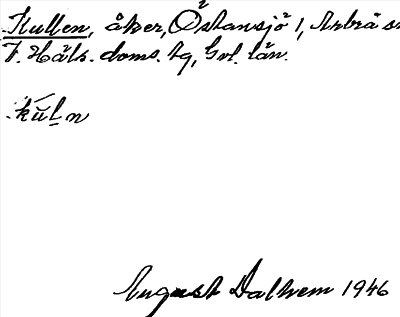 Kullen, åker, Östansjö 1, Arbrå s
V. Häls. doms. tg, Gvl. län.
kúl̠n
August Dalhem 1946